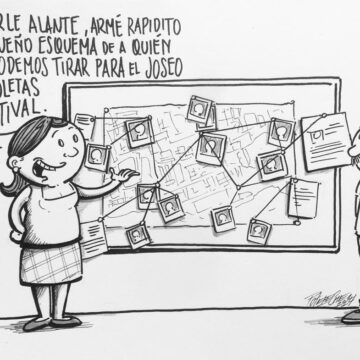 RLE ALANTE, ARMÉ RAPIDITO
UEÑO ESQUEMA DE A QUIÉN
ODEMOS TIRAR PARA EL JOSEO
OLETAS
TIVAL.